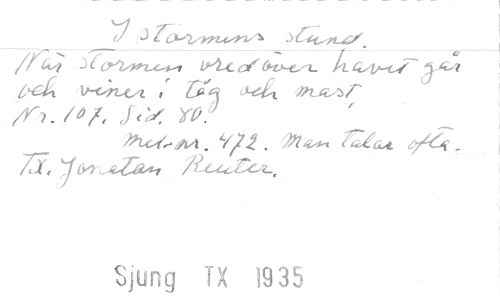 I stormens stund.
När stormen vred över havet går
och viner i tåg och mast,
Nr. 107. Sid. 80.
Mel.nr. 472. Man talar ofta.
Tx. Jonatan Reuter.
Sjung TX 1935